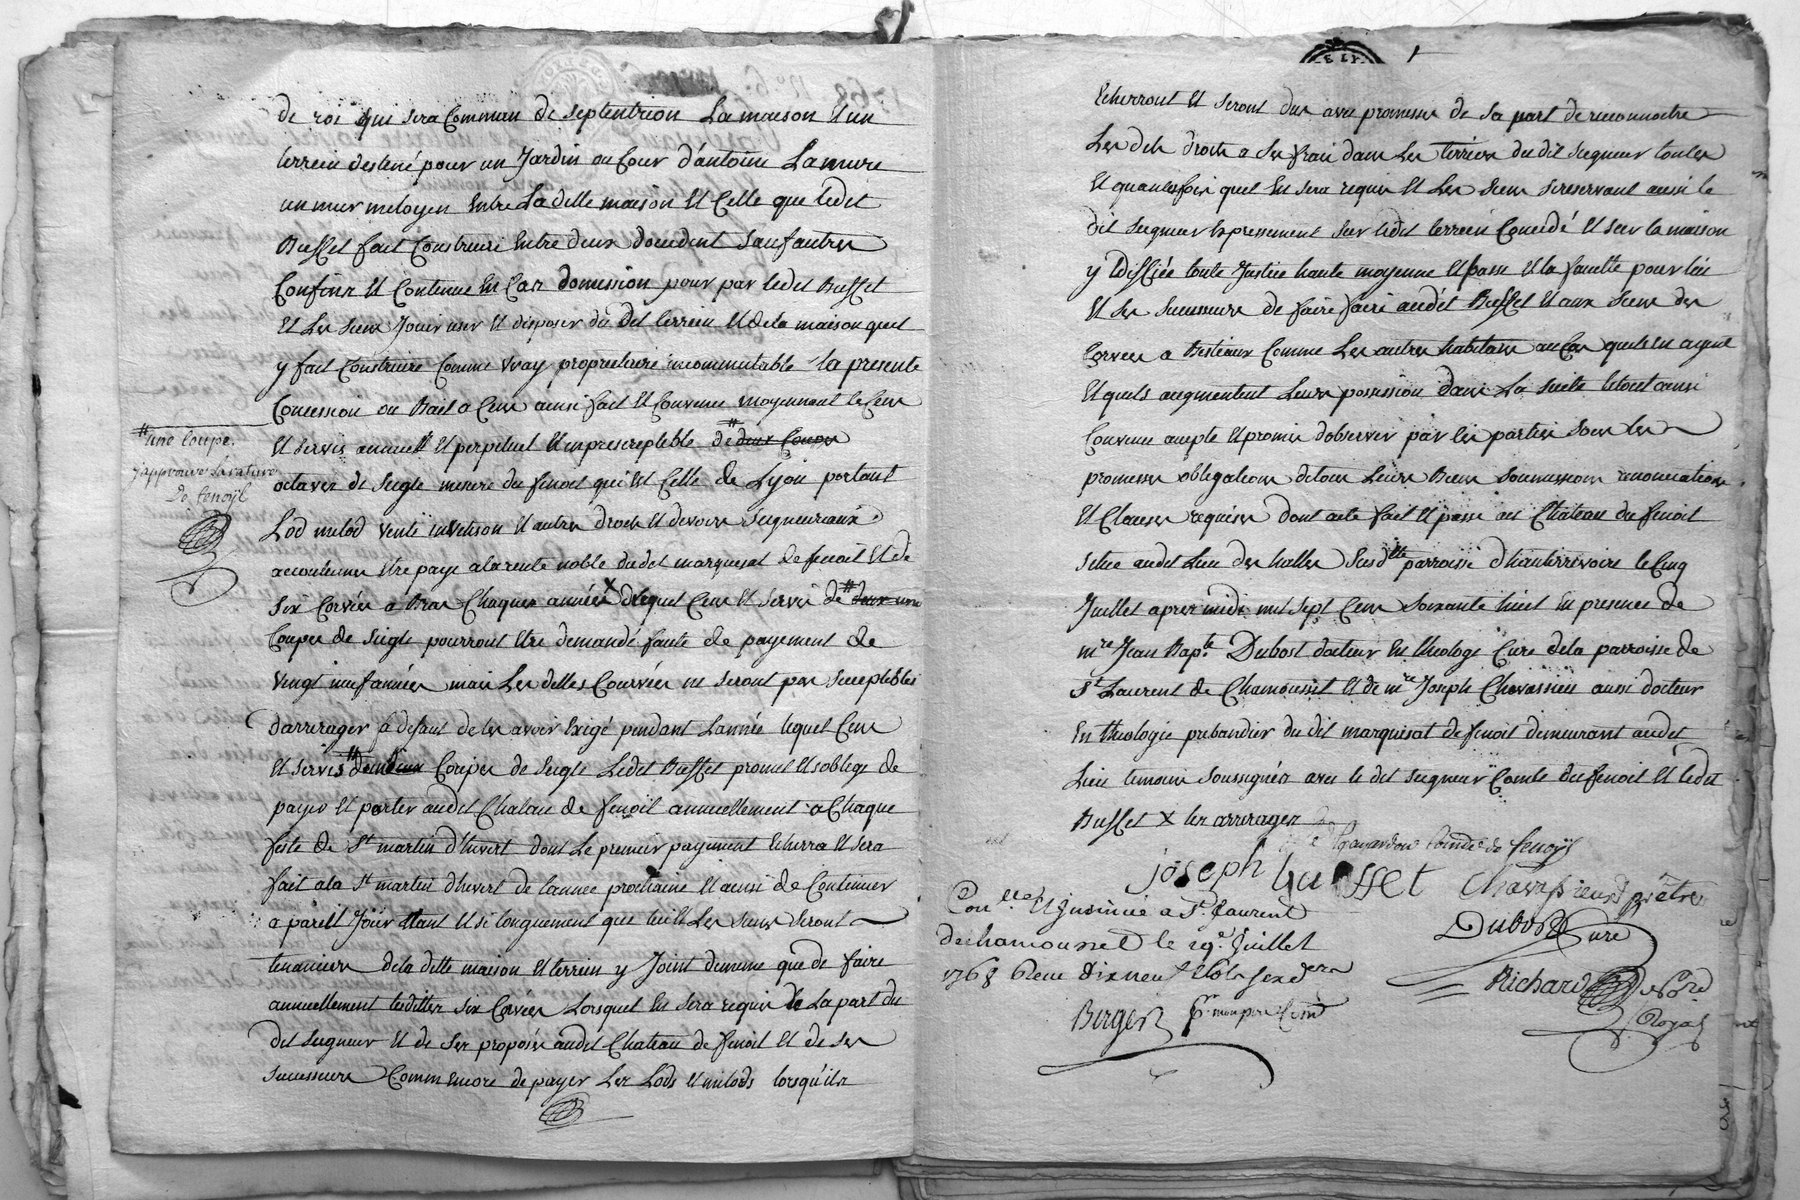 de roi qui sera Commun de septentrion La maison et un
terrein destiné pour un Jardin ou Cour d'antoine Lamure
un mur mitoyen entre La ditte maison et Celle que ledit
Buffet fait Construire Entre deux d'occident sauf autres
Confins et Contenue en Cas domission pour par ledit Buffet
et Les siens Jouir user et disposer du dit terrein et dela maison quil
y fait Construire Comme vray proprietaire incommutable la presente
Concession ou Bail a Cens ainsi fait et Convenu moyennant le Cens
et servis annuell et perpetuel et inprescreptible de # deux Coupes
# une Coupe.
J'approuve la rature
De fenoÿl
octaves de seigle mesure du fenoil qui est Celle de Lyon portant
Lod milod vente invetison et autres droits et devoirs seigneuriaux
accoutumes etre payé ala rente noble dudit marquisat de fenoil et de
six Corvées a Bras Chaques années X duquel Cens et servis de #
Coupes de seigle pourront etre demandé faute de payement de
vingt neuf années mais Les dittes Courvées ne seront pas suceptibles
darrerages a defaut de les avoir Exigé pendant Lannée lequel Cens
et servis # de deux Coupes de seigle Ledit Buffet promet et soblige de
payer et porter audit Chateau de fenoil annuellement a Chaque
feste de St martin d'hivert dont Le premier payement Echerra et sera
fait ala St martin d'hivert de lannee prochaine et ainsi de Continuer
a pareil Jour tant et si longuement que lui et Les siens seront
tenancier dela ditte maison et terrein y Joint demême que de faire
annuellement lesdittes six Corvées Lorsquil en sera requis de La part du
dit seigneur et de ses proposés audit Chateau de fenoil et de ses
successeurs Comm encore de payer Les Lods et milods lorsqu'ils
Echerront et seront dus avec promesse de sa part de reconnoitre
Les dits droits a ses frais dans Les terriers du dit seigneur toutes
et quantesfois quil en sera requis et Les siens se reservant aussi le
dit seigneur Expressement sur ledit terrein Concedé et sur la maison
y Ediffiée toute Justice haute moyenne et basse et la faculté pour lui
et ses successeurs de faire faire audit Buffet et aux siens des
Corvées a Bestiaux Comme Les autres habitans au Cas quils en ayent
et quils augmentent Leurs possession dans La suite letout ainsi
Convenu accepté et promis d'observer par les parties sous les
promesses obligations detous Leurs Biens soumissions renonciations
et Clauses requises dont acte fait et passé au Chateau du fenoil
situé audit Lieu des halles susdtte parroisse d'hauterrivoire le Cinq
Juillet apres midi mil sept Cens soixante huit en presence de
mre Jean Bapte Dubost docteur en theologie Curé dela parroisse de
St Laurent de Chamousset et de mre Joseph Chavassieu aussi docteur
en theologie prebandier du dit marquisat de fenoil demeurant audit
Lieu temoins soussignés avec le dit seigneur Comte du fenoil et ledit
Buffet X les arrerages
Comte de fenoÿl
joseph buffet Chavassieus prêtre
Dubost Curé
Conllé et Insinué a St. Laurent
dechamousset le 19e. Juillet
1768 Reçu dix neuf
Richard Nore
Royal
Berger